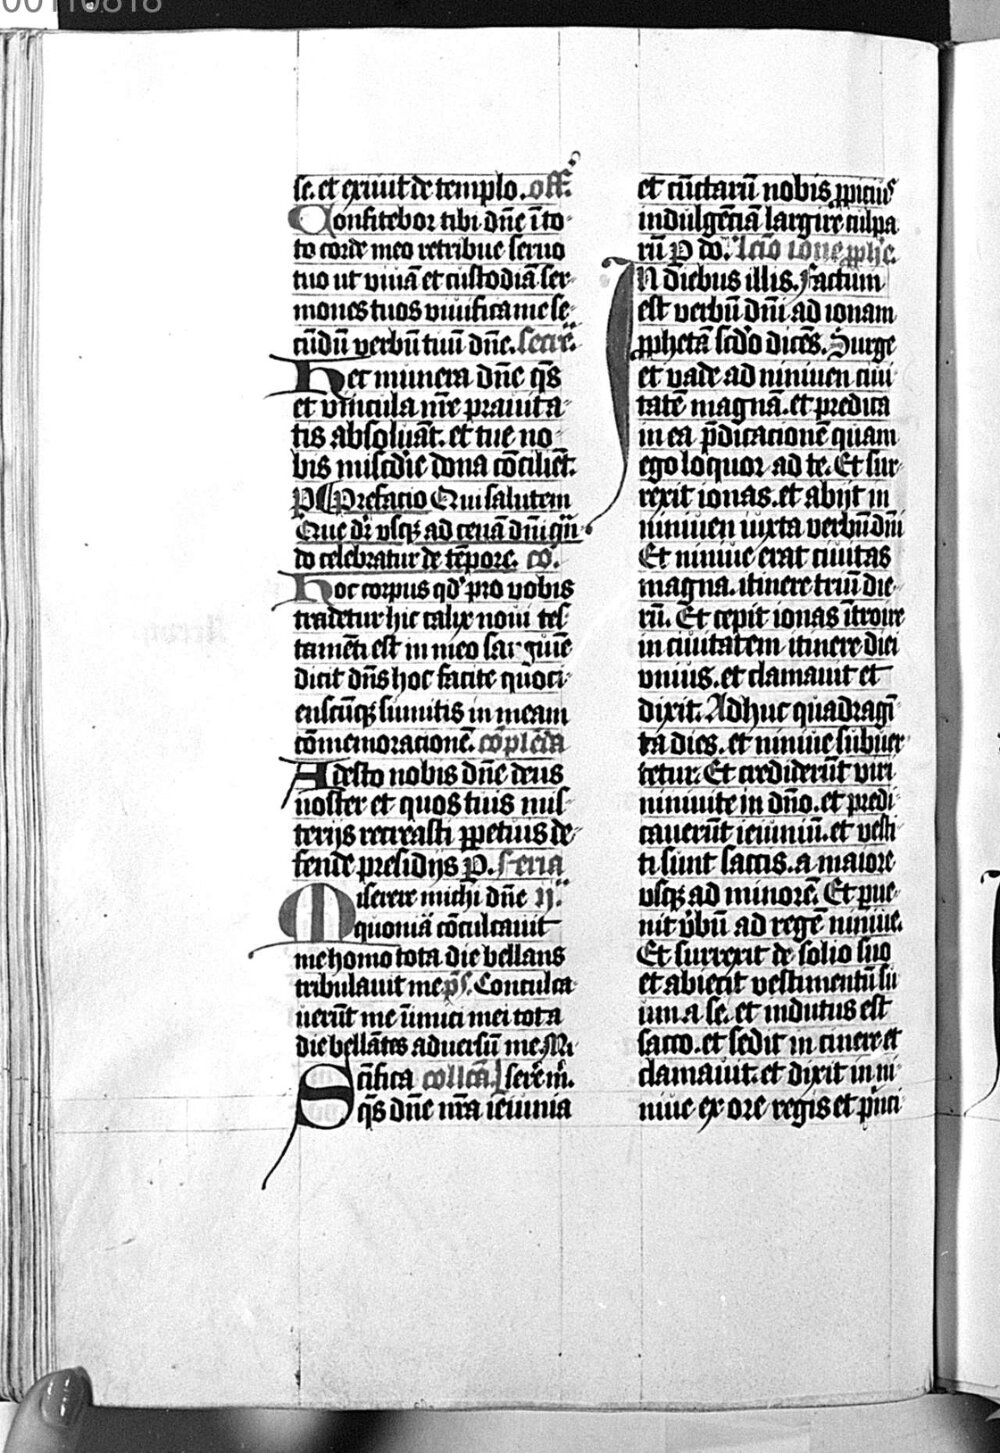 se. et exiuit de templo. off̄.
Confitebor tibi dn̄e ī to
to corde meo retribue seruo
tuo ut viuā et custodiā ser
mones tuos viuifica me se
cūdū verbū tuū dn̄e. secre᷑.
Hec munera dn̄e qs̄
et vincula nr̄e prauita
tis absoluāt. et tue no
bis mis̄cdie dona cōciliēt.
P Prefacio Qui salutem
Que dr̄ vsqꝫ ad cenā dn̄i qn̄
do celebratur de tēpore. cō.
Hoc corpus qd̓ pro vobis
tradetur hic calix noui tes
tamēti est in meo sanguīe
dicit dn̄s hoc facite quoci
enscūqꝫ sumitis in meam
cōmemoracionē. cōplēda
Adesto nobis dn̄e deus
noster et quos tuis mis
terijs recreasti ꝑpetuis de
fende presidijs P. Feria
Miserere michi dn̄e ij᷑.
quoniā cōculcauit
me homo tota die bellans
tribulauit me ps̄. Conculca
uerūt me īimici mei tota
die bellātes aduersū me Mi
Sc̄ifica collcā serem᷑.
qs̄ dn̄e nr̄a ieiunia
et cūctarū nobis ꝓpicius
indulgēciā largire culpa
rū P do. lcīo ione ꝓphe.
IN diebus illis. Factum
est verbū dn̄i ad ionam
ꝓphetā scd̓o dicēs. Surge
et vade ad niniuen ciui
tatē magnā. et predica
in ea p̄dicacionē quam
ego loquor ad te. Et sur
rexit ionas. et abijt in
niniuen iuxta verbū dn̄i
Et niniue erat ciuitas
magna. itinere triū die
rū. Et cepit ionas ītroire
in ciuitatem itinere diei
vnius. et clamauit et
dixit. Adhuc quadragī
ta dies. et niniue subuer
tetur. Et crediderūt viri
niniuite in dn̄o. et predi
cauerūt ieiuniū. et vesti
ti sunt saccis. a maiore
vsqꝫ ad minorē. Et ꝑue
nit v̓bū ad regē niniue.
Et surrexit de solio suo
et abiecit vestimentū su
um a se. et indutus est
sacco. et sedit in cinere et
clamauit. et dixit in ni
niue ex ore regis et p̓nci